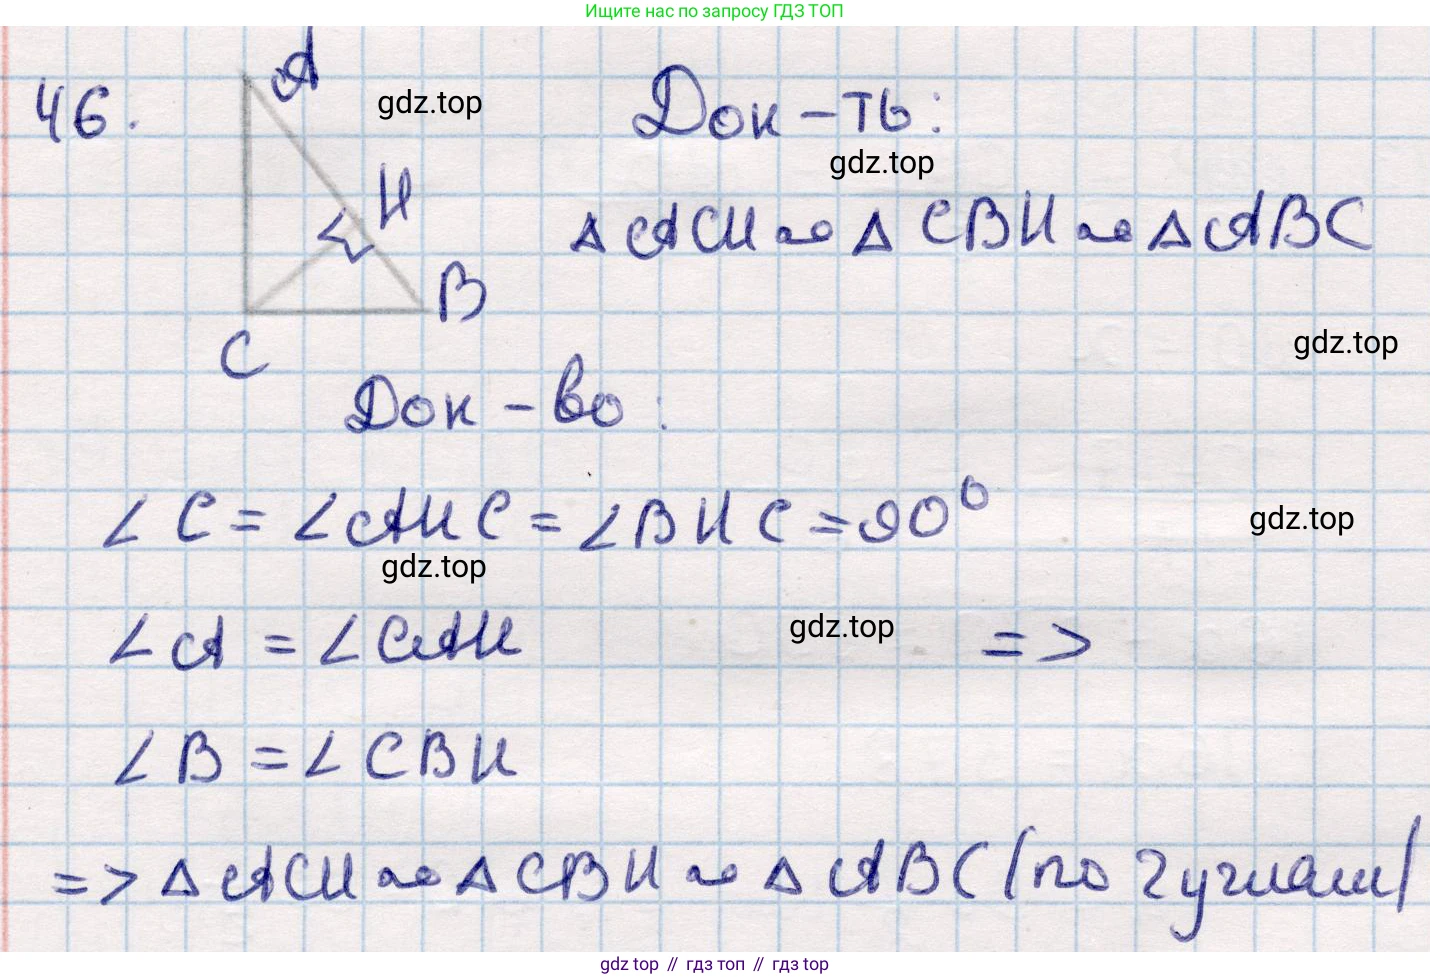 Ищите нас по запросу ГДЗ ТОП
46.
A
H
B
C
gdz.top
Док-ть:
gdz.top
△ ACH ∾ △ CBH ∾ △ ABC
gdz.top
Док-во:
∠ C = ∠ AHC = ∠ BHC = 90⁰
gdz.top
gdz.top
∠ A = ∠ CAH =>
gdz.top
∠ B = ∠ CBH
=> △ ACH ∾ △ CBH ∾ △ ABC (по 2 углам)
gdz top // гдз топ // гдз top